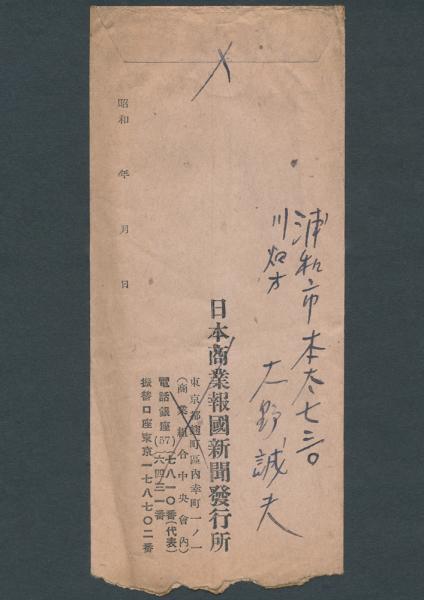 浦和市本太七三〇
川口方
大野誠夫
日本商業報國新聞發行所
東京都麹町區内幸町一ノ一
(商業組合中央會内)
電話銀座(57)七八一〇番(代表)
六四三一番
振替口座東京一七八七〇二番
昭和 年 月 日